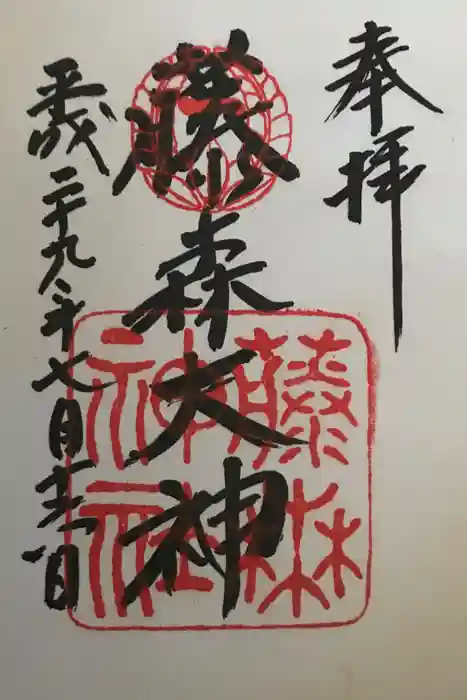 奉拝
藤森大神
平成二十九年七月
藤森
神社